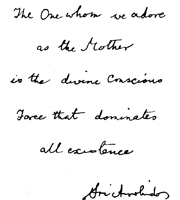 The One whom we adore
as the Mother
is the divine Conscious
Force that dominates
all existence
Sri Aurobindo